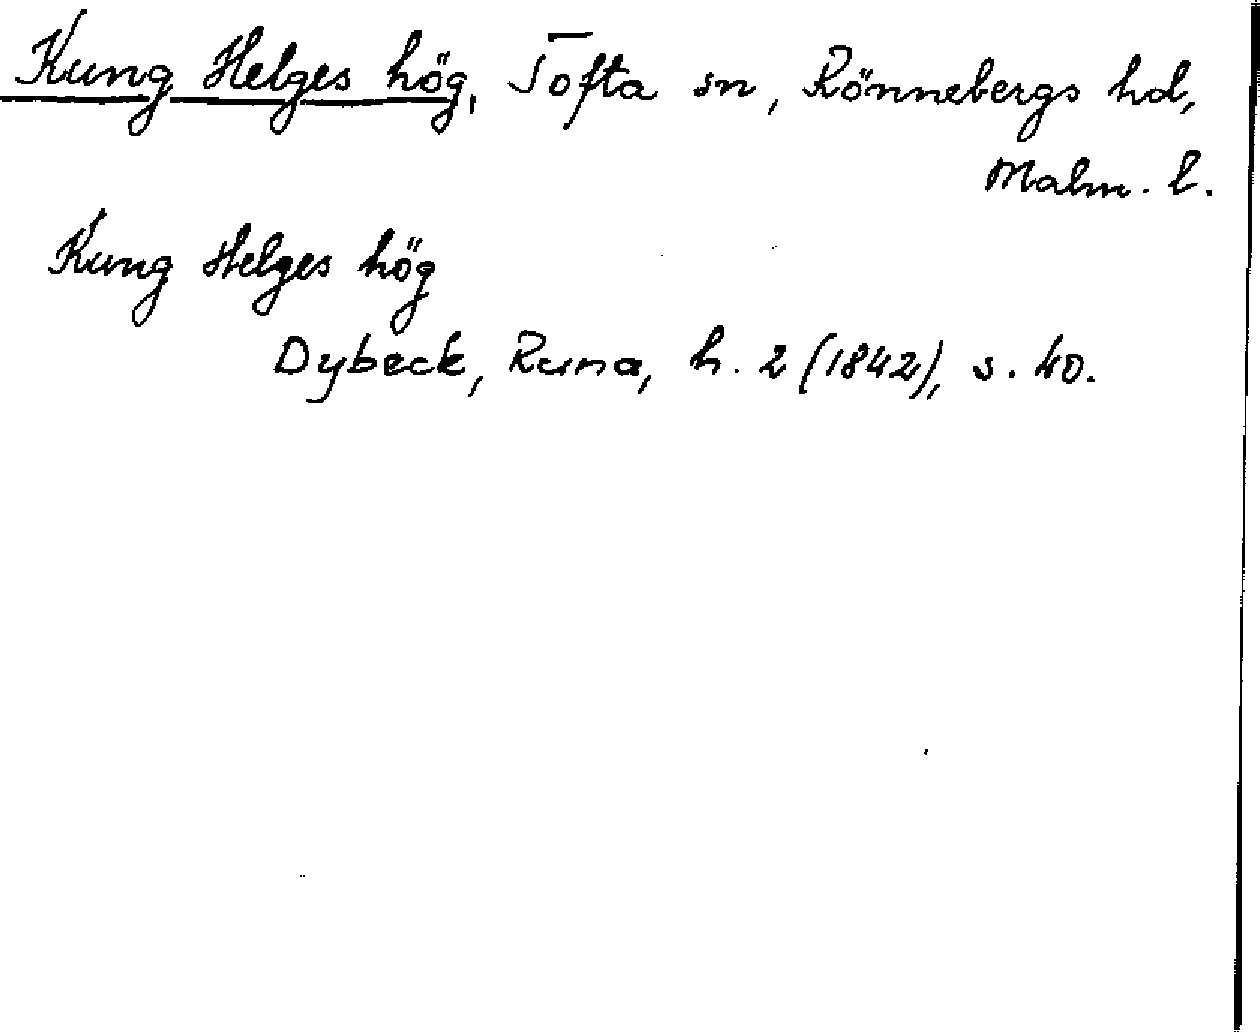 Kung Helges hög, Tofta sn, Rönnebergs hd,
Malm. l.
Kung Helges hög
Dybeck, Runa, h. 2 (1842), s. 40.